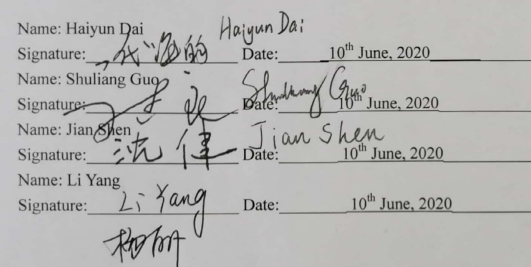 Name: Haiyun Dai Haiyun Dai
Signature: Date: 10th June, 2020
Name: Shuliang Guo Shuliang Guo
Signature: Date: 10th June, 2020
Name: Jian Shen Jian Shen
Signature: 沈健 Date: 10th June, 2020
Name: Li Yang
Signature: Li Yang Date: 10th June, 2020
杨丽